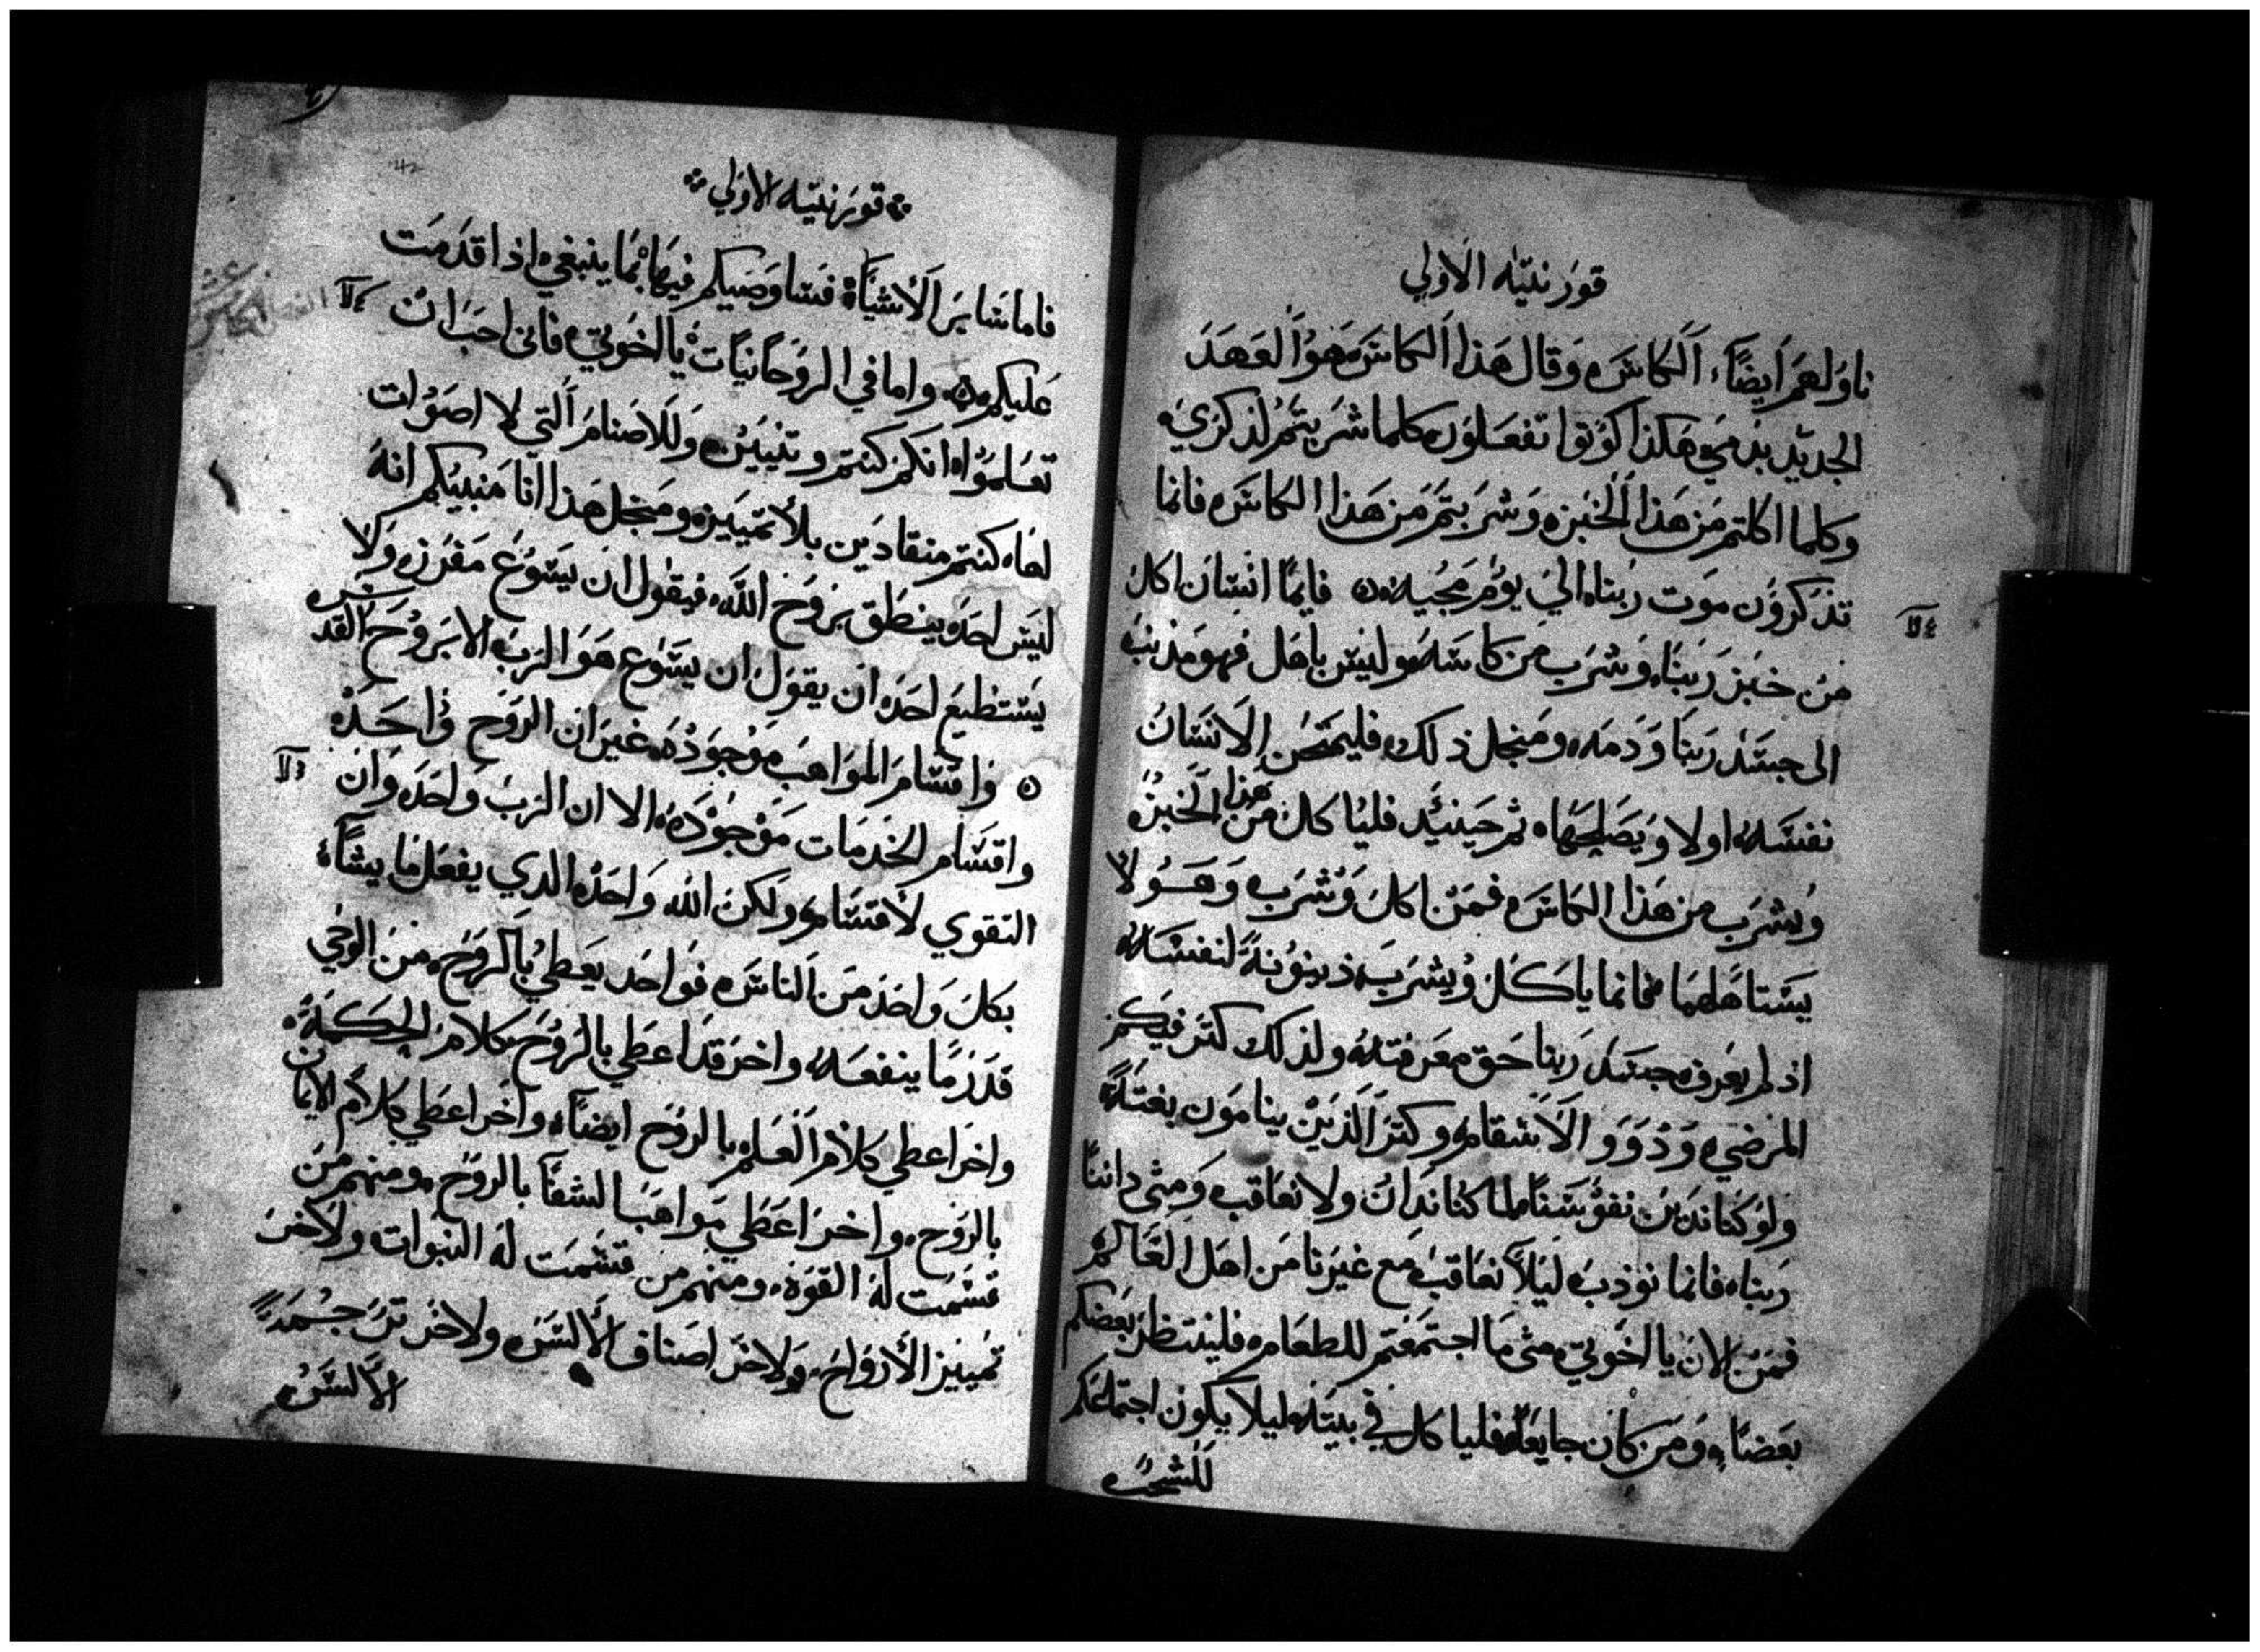 قورنتيه الاولي
ناولهم ايضا الكاس وقال هذا الكاس هو العهد
الجديد بدمي هكذا كونوا تفعلون كلما شربتم لذكري
وكلما اكلتم من هذا الخبز وشربتم من هذا الكاس فانما
تذكرون موت ربنا الي يوم مجيه فايما انسان اكل
من خبز ربنا وشرب من كاسه وليس باهل فهو مذنب
الى جسد ربنا ودمه ومنجل ذلك فليمتحن الانسان
نفسه اولا ويصلحها ثم حينئد فلياكل من هذا الخبز
ويشرب من هذا الكاس فمن اكل وشرب وهو لا
يستاهلهما فانما ياكل ويشرب دينونة لنفسه
اذ لم يعرف جسد ربنا حق معرفته ولذلك كتر فيكم
المرضي وذوو الاسقام وكتر الذين ينامون بغتة
ولو كنا ندين نفوسنا لما كنا ندان ولا نعاقب ومتى داننا
ربنا فانما نودب ليلا نعاقب مع غيرنا من اهل العالم
فمن الان يا اخوتي متى ما اجتمعتم للطعام فلينتظر بعضكم
بعضا ومن كان جايعا فلياكل في بيته ليلا يكون اجتماعكم
للشجب
قورنتيه الاولي
فاما ساير الاشياء فساوصيكم فيها بما ينبغي اذا قدمت
عليكم واما في الروحانيات يا اخوتي فانى احب ان
تعلموا انكم كنتم وتنيين وللاصنام التي لا اصوات
لها كنتم منقادين بلا تمييز ومنجل هذا انا منبيكم انه
ليس احد ينطق بروح الله فيقول ان يسوع مفرز ولا
يستطيع احد ان يقول ان يسوع هو الرب الا بروح القدس
واقسام المواهب موجوده غير ان الروح واحد
واقسام الخدمات موجوده الا ان الرب واحد وان
التقوي لاقسام ولكن الله واحد الدي يفعل ما يشاء
بكل واحد من الناس فواحد يعطي بالروح من الوحي
قدر ما ينفعه واخر قد اعطي بالروح كلام الحكمة
واخر اعطي كلام العلم بالروح ايضا واخر اعطي كلام الايمان
بالروح واخر اعطي مواهب الشفآ بالروح ومنهم من
قسمت له القوة ومنهم من قسمت له النبوات ولاخر
تمييز الارواح ولاخر اصناف الالسن ولاخر ترجمة
الالسن